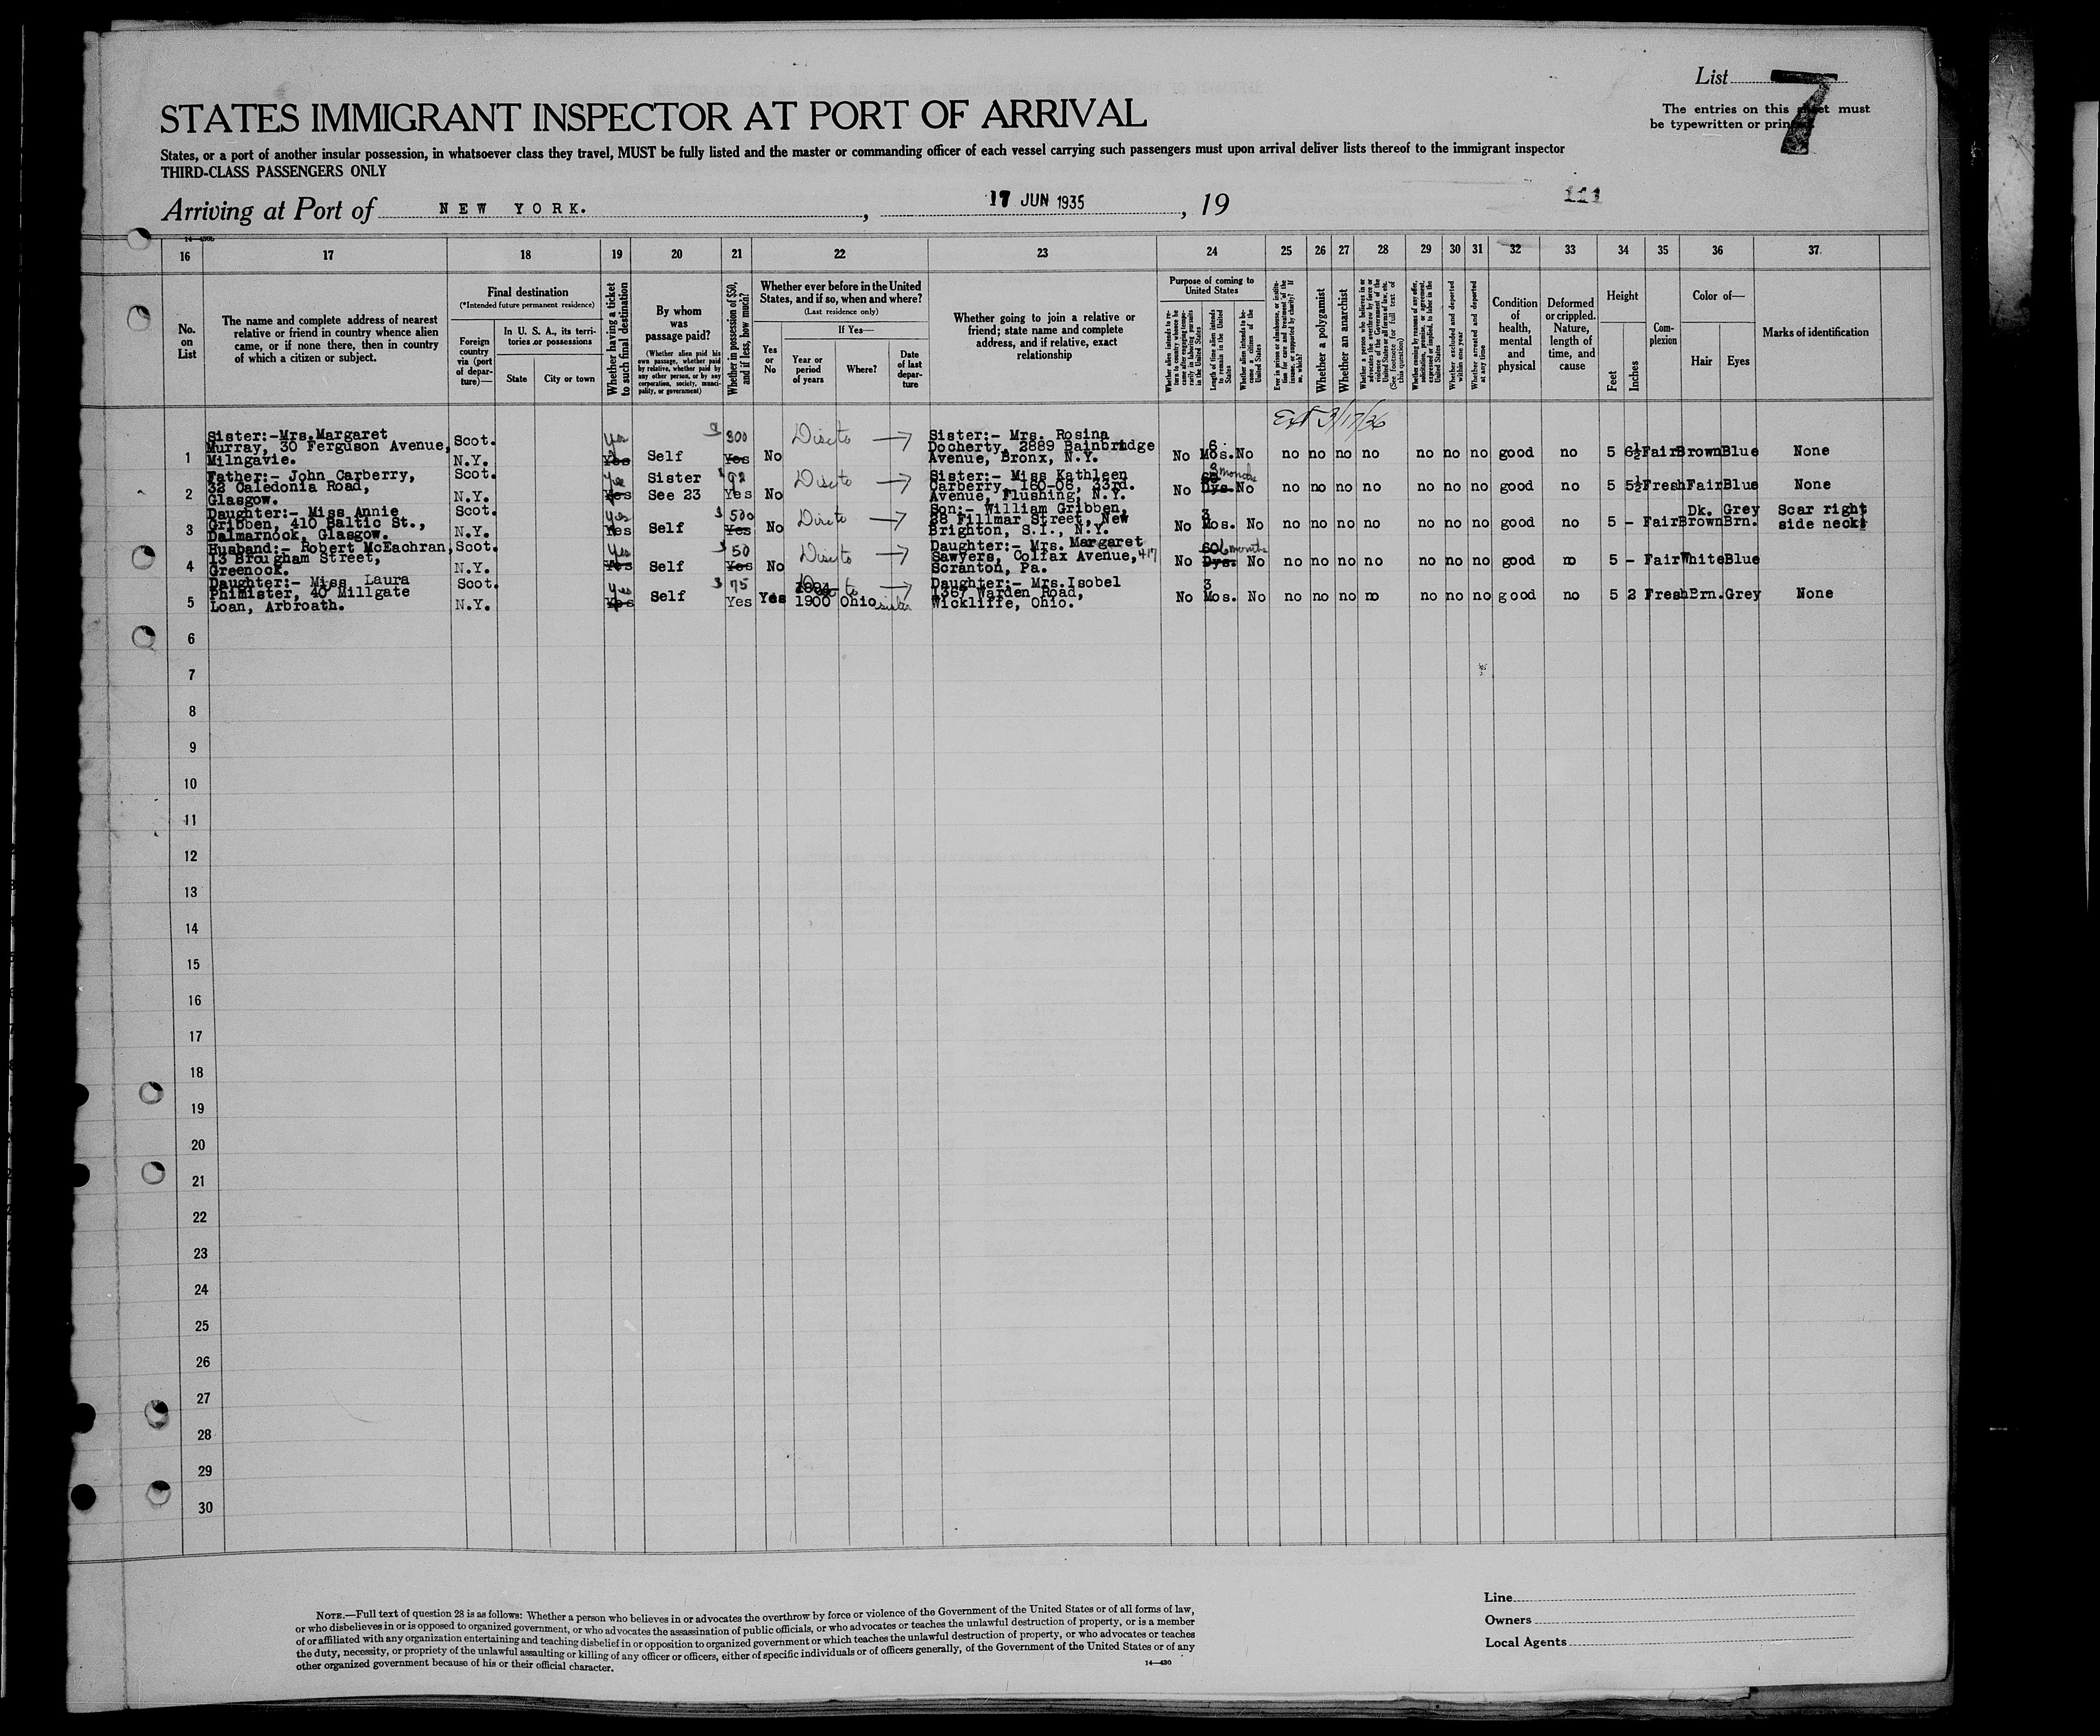 List 7
STATES IMMIGRANT INSPECTOR AT PORT OF ARRIVAL
The entries on this sheet must
be typewritten or printed
States, or a port of another insular possession, in whatsoever class they travel, MUST be fully listed and the master or commanding officer of each vessel carrying such passengers must upon arrival deliver lists thereof to the immigrant inspector
THIRD-CLASS PASSENGERS ONLY
Arriving at Port of NEW YORK. , 17 JUN 1935 , 19
111
16 17 18 19 20 21 22 23 24 25 26 27 28 29 30 31 32 33 34 35 36 37
No. on List
The name and complete address of nearest
relative or friend in country whence alien
came, or if none there, then in country
of which a citizen or subject.
Final destination
(*Intended future permanent residence)
Foreign country via (port of departure)—
In U. S. A., its territories or possessions
State
City or town
Whether having a ticket to such final destination
By whom was passage paid?
(Whether alien paid his own passage, whether paid by relative, whether paid by any other person, or by any corporation, society, municipality, or government)
Whether in possession of $50, and if less, how much?
Whether ever before in the United States, and if so, when and where?
(Last residence only)
Yes or No
If Yes—
Year or period of years
Where?
Date of last departure
Whether going to join a relative or
friend; state name and complete
address, and if relative, exact
relationship
Purpose of coming to United States
Length of time alien intends to remain in the United States
Whether alien intends to become a citizen of the United States
Whether a polygamist
Whether an anarchist
Whether excluded and deported within one year
Whether arrested and deported at any time
Condition of health, mental and physical
Deformed or crippled. Nature, length of time, and cause
Height
Feet
Inches
Complexion
Color of—
Hair
Eyes
Marks of identification
Ext 3/17/36
1 Sister:-Mrs.Margaret Murray, 30 Ferguson Avenue, Milngavie. Scot. N.Y. Yes Yes Self $ 300 Yes No Sister:- Mrs. Rosina Docherty, 2889 Bainbridge Avenue, Bronx, N.Y. No 6 Mos. No no no no no no no no good no 5 6½ Fair Brown Blue None
2 Father:- John Carberry, 32 Caledonia Road, Glasgow. Scot. N.Y. Yes Yes Sister See 23 Yes No Sister:- Miss Kathleen Carberry, 160-06, 33rd. Avenue, Flushing, N.Y. No 60 Dys. 3 months No no no no no no no no good no 5 5½ Fresh Fair Blue None
3 Daughter:- Miss Annie Gribben, 410 Baltic St., Dalmarnock, Glasgow. Scot. N.Y. Yes Yes Self $ 500 Yes No Son:- William Gribben, 28 Fillmar Street, New Brighton, S.I., N.Y. No 3 Mos. No no no no no no no no good no 5 - Fair Dk. Brown Grey Brn. Scar right side neck
4 Husband:- Robert McEachran, 13 Brougham Street, Greenock. Scot. N.Y. Yes Yes Self $ 50 Yes No Daughter:- Mrs. Margaret Sawyers, Colfax Avenue, 417 Scranton, Pa. No 60 Dys. 6 months No no no no no no no no good no 5 - Fair White Blue
5 Daughter:- Miss Laura Phimister, 40 Millgate Loan, Arbroath. Scot. N.Y. Yes Yes Self $ 75 Yes Yes 1894 1900 Ohio Daughter:- Mrs.Isobel 1367 Warden Road, Wickliffe, Ohio. No 3 Mos. No no no no no no no no good no 5 2 Fresh Brn. Grey None
6
7
8
9
10
11
12
13
14
15
16
17
18
19
20
21
22
23
24
25
26
27
28
29
30
NOTE.—Full text of question 28 is as follows: Whether a person who believes in or advocates the overthrow by force or violence of the Government of the United States or of all forms of law,
or who disbelieves in or is opposed to organized government, or who advocates the assassination of public officials, or who advocates or teaches the unlawful destruction of property, or is a member
of or affiliated with any organization entertaining and teaching disbelief in or opposition to organized government or which teaches the unlawful destruction of property, or who advocates or teaches
the duty, necessity, or propriety of the unlawful assaulting or killing of any officer or officers, either of specific individuals or of officers generally, of the Government of the United States or of any
other organized government because of his or their official character.
14—430
Line
Owners
Local Agents